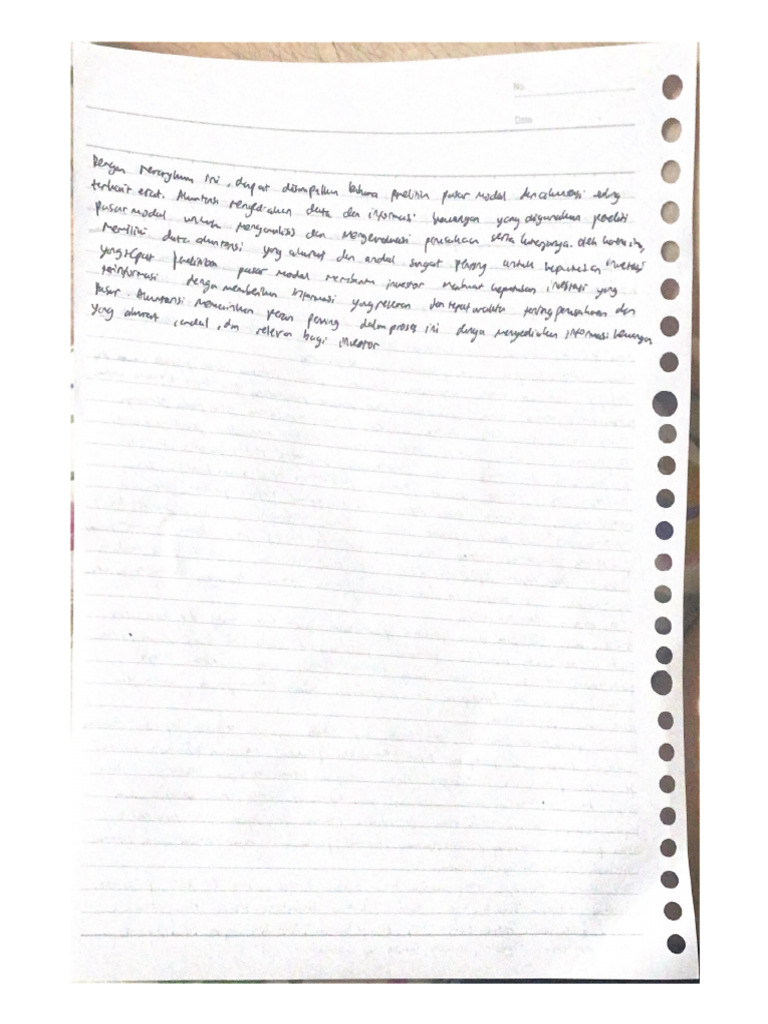 No
Date
Dengan merangkum ini, dapat disimpulkan bahwa penelitian pasar modal dan akuntansi saling
terkait erat. Akuntansi menyediakan data dan informasi keuangan yang digunakan peneliti
pasar modal untuk menganalisis dan mengevaluasi perusahaan serta kinerjanya. Oleh karena itu,
memiliki data akuntansi yang akurat dan andal sangat penting untuk keputusan investasi
yang tepat penelitian pasar modal membantu investor membuat keputusan investasi yang
terinformasi dengan memberikan informasi yang relevan dan tepat waktu tentang perusahaan dan
pasar. Akuntansi memainkan peran penting dalam proses ini dengan menyediakan informasi keuangan
yang akurat, andal, dan relevan bagi investor